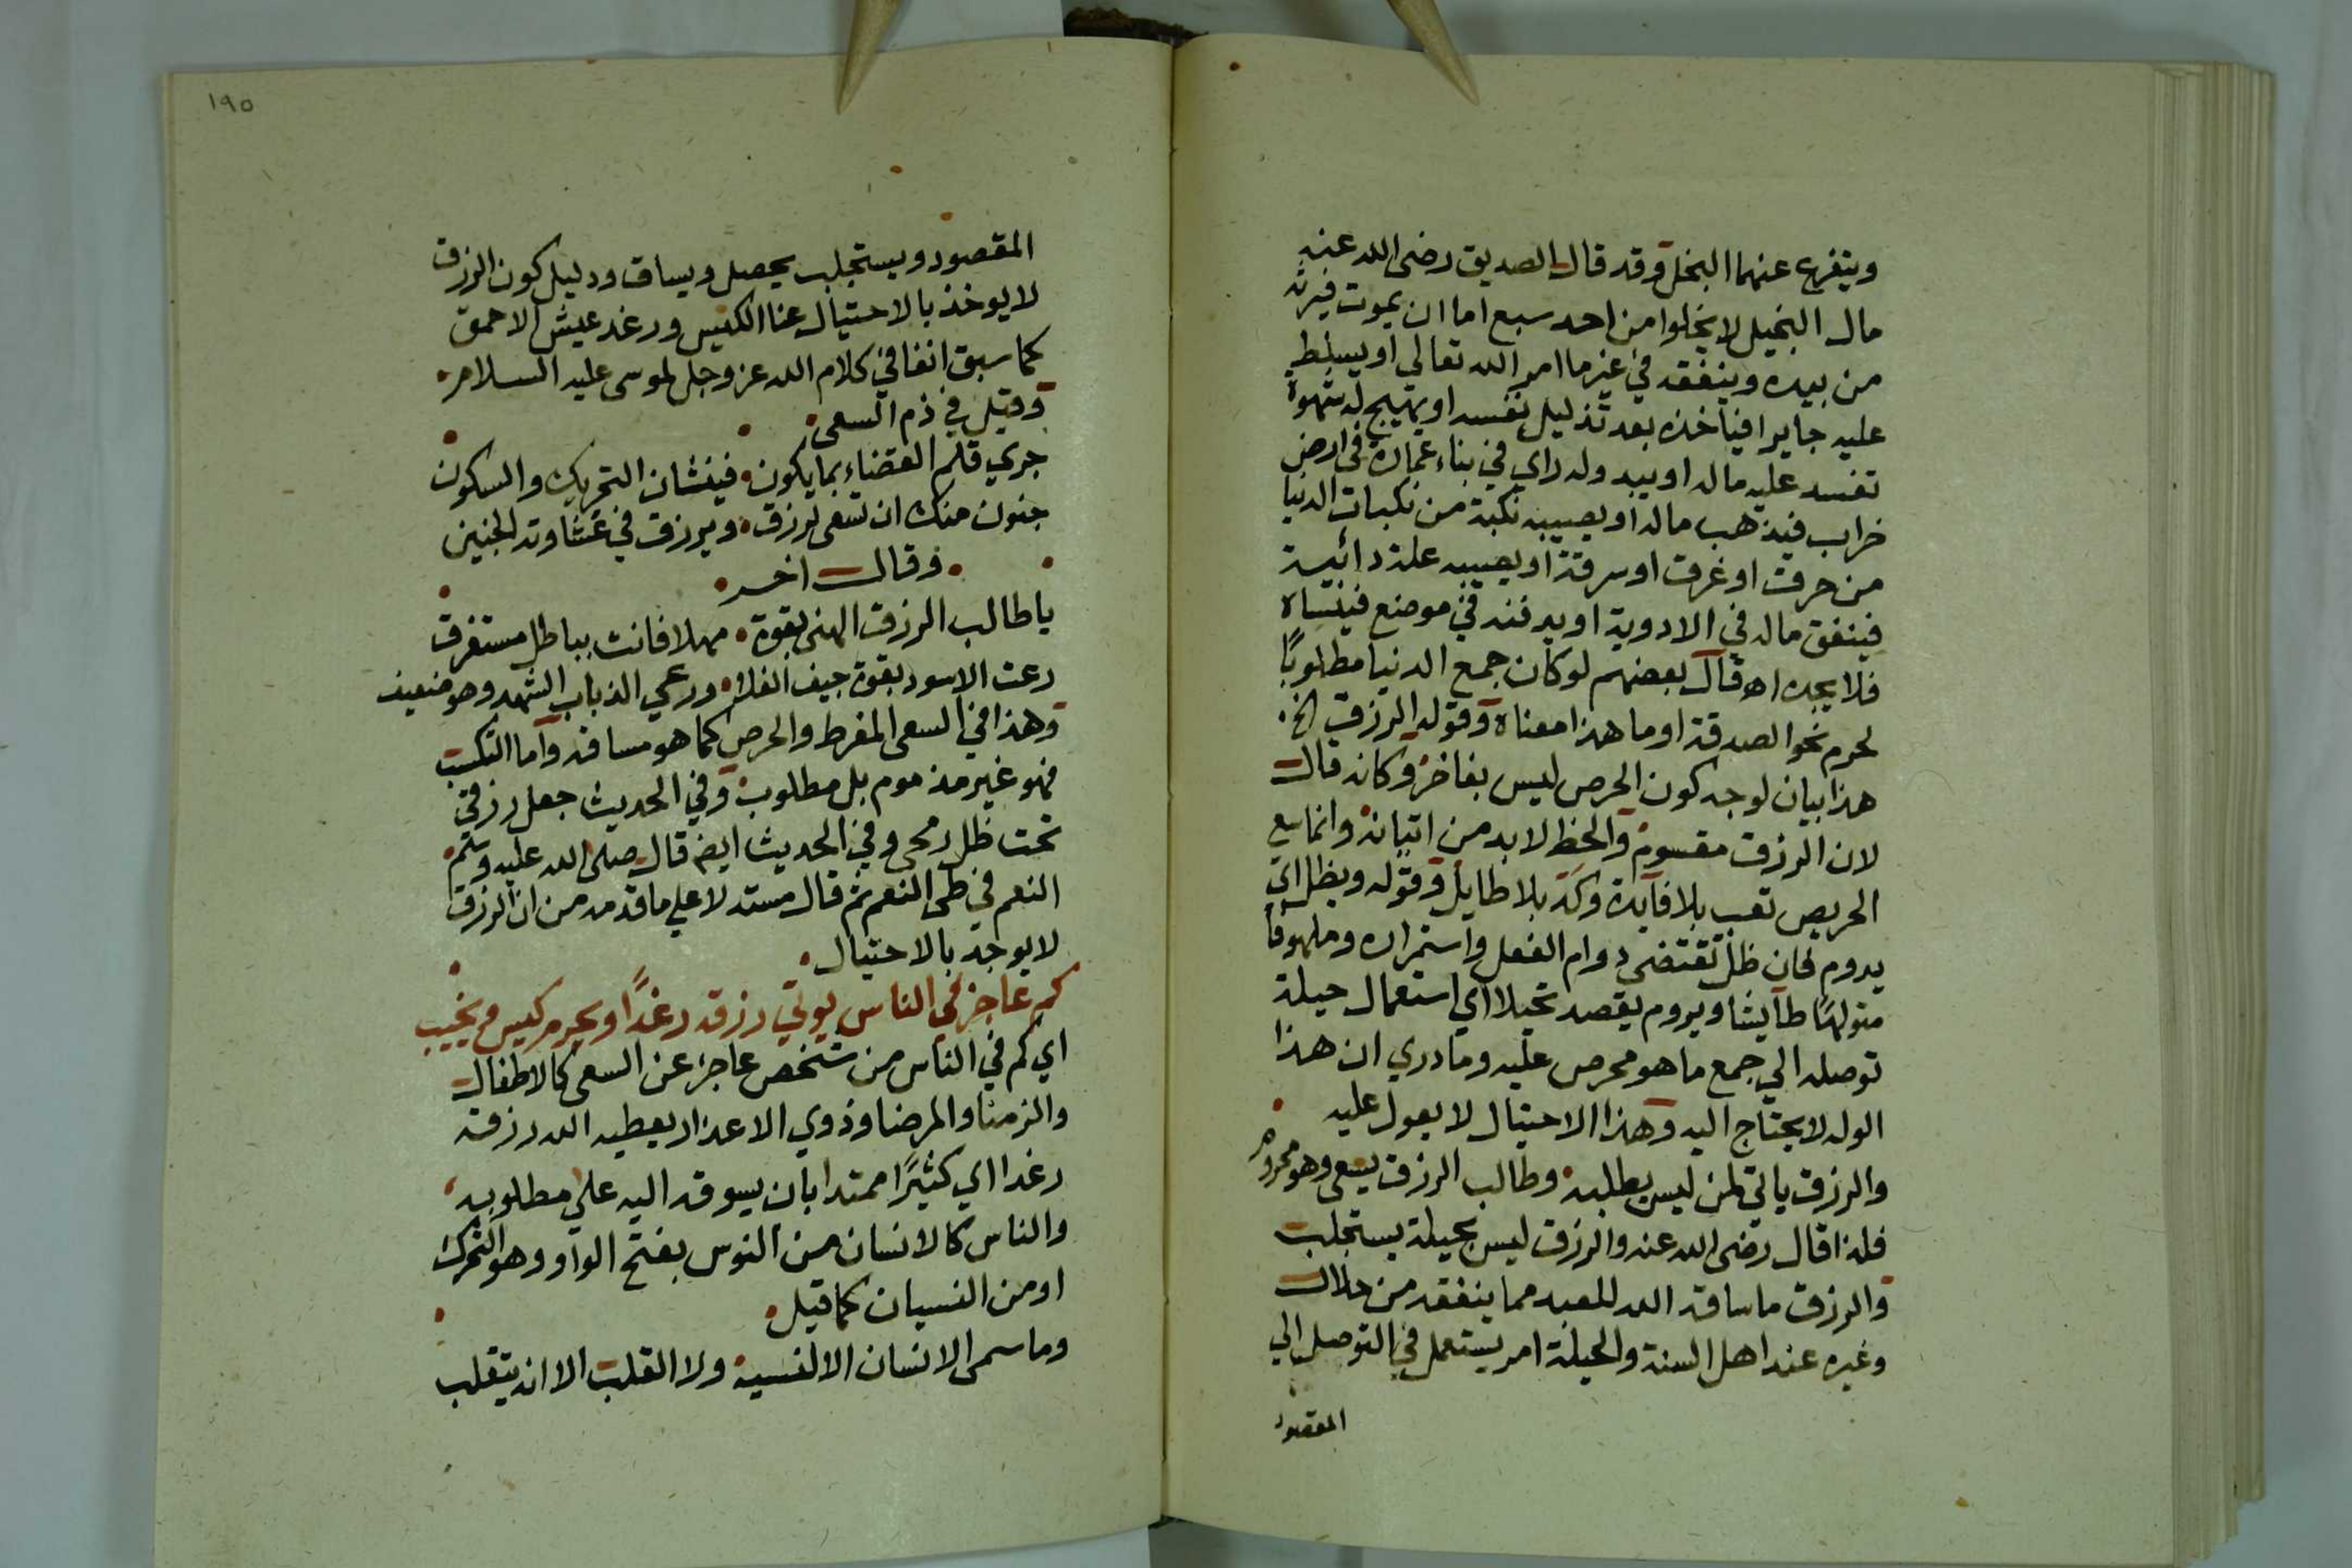 ويتفرع عنهما البخل وقد قال الصديق رضى الله عنه
مال البخيل لا يخلوا من احد سبع اما ان يموت فيرثه
من بيده وينفقه في غير ما امر الله تعالى او يسلط
عليه جايرا فياخذه بعد تذليل نفسه او يهيج له شهوة
تفسد عليه ماله او يبدو له راي في بناء عمارة في ارض
خراب فيذهب ماله او يصيبه نكبة من نكبات الدنيا
من حرق او غرق او سرقة او يصيبه علة دائمة
فينفق ماله في الادوية او يدفنه في موضع فينساه
فلا يجده اه قال بعضهم لو كان جمع الدنيا مطلوبًا
لحرم نحو الصدقة او ما هذا معناه وقوله الرزق الخ
هذا بيان لوجه كون الحرص ليس بفاخر وكانه قال
لان الرزق مقسوم والحظ لا بد من اتيانه وانما سع
الحريص تعب بلا فايدة وكد بلا طايل وقوله ويظل اي
يدوم فان ظل تقتضى دوام الفعل واستمراره وملهوفا
متولهًا طايشا ويروم يقصد تحيلا اي استعمال حيلة
توصله الي جمع ما هو محرص عليه وما دري ان هذا
الوله لا يحتاج اليه وهذا الاحتيال لا يعول عليه
والرزق ياتي لمن ليس يطلبه وطالب الرزق يسعى وهو محروم
فلذا قال رضى الله عنه والرزق ليس بحيلة يستجلب
والرزق ما ساقه الله للعبد مما ينفقه من حلال
وغيره عند اهل السنة والحيلة امر يستعمل في التوصل الي
المقصود
١٩٥
المقصود ويستجلب يحصل ويساق ودليل كون الرزق
لا يوخذ بالاحتيال عنا الكيس ورغد عيش الاحمق
كما سبق انفا في كلام الله عز وجل لموسى عليه السلام
وقيل في ذم السعى
جري قلم القضاء بما يكون فيسان التحريك والسكون
جنون منك ان تسعى لرزق ويرزق في غشاوته الجنين
وقال اخر
يا طالب الرزق الهنى بقوة مهلا فانت بباطل مستغرق
رعت الاسود بقوة جيف الفلا ورعي الذباب الشهد وهو ضعيف
وهذا في السعى المفرط والحرص كما هو مساقه واما التكسب
فهو غير مذموم بل مطلوب وفي الحديث جعل رزقي
تحت ظل رمحى وفي الحديث ايضا قال صلى الله عليه وسلم
النعم في طى النعم ثم قال مستدلا علي ما قدمه من ان الرزق
لا يوجد بالاحتيال
كم عاجز في الناس يوتي رزقه رغدًا ويحرم كيس ويخيب
اي كم في الناس من شخص عاجز عن السعى كالاطفال
والزمنا والمرضا وذوي الاعذار يعطيه الله رزقه
رغدا اي كثيرًا ممتدا بان يسوقه اليه علي مطلوبه
والناس كالانسان من النوس بفتح الواو وهو التحرك
او من النسيان كما قيل
وما سمى الانسان الا لنسيه ولا القلب الا انه يتقلب